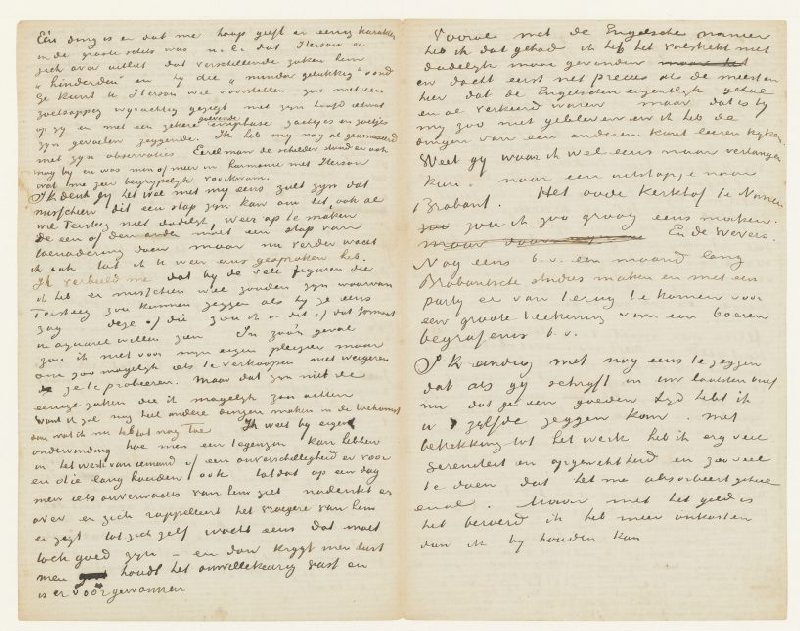 Eén ding is er dat me hoop geeft en eenig karakter
in de groote schets was n.l. dat Tersteeg er
zich over uitliet dat verschillende zaken hem
"hinderden" en hij die "minder gelukkig" vond
Ge kunt u Tersteeg wel voorstellen
gezegd met zijn hoofd
op zij en met een zekere
zijn gevoelen zeggende. Ik heb mij nog al geamuseerd
met zijn observaties Eerelman de schilder stond er ook
nog bij en was min of meer in harmonie met Tersteeg
wat me zeer begrijpelijk voorkwam.
Ik denk gij het wel met mij eens zult zijn dat
misschien dit een stap zijn kan om het, ook al
me Tersteeg niet dadelijk, weer op te maken
de een of den ander moet een stap van
toenadering doen maar nu verder wacht
ik ook tot ik U weer eens gesproken heb.
Ik verbeeld me dat bij de vele figuren die
ik heb er misschien wel zouden zijn waarvan
Tersteeg zou kunnen zeggen als hij ze eens
zag deze of die zou ik in dit of dat formaat
in aquarel willen zien In zoo'n geval
zou ik niet voor mijn eigen plezier maar
om zoo mogelijk iets te verkoopen niet weigeren
ze te probeeren. Maar dat zijn niet de
eenige zaken die ik mogelijk zou achten
want ik zal nog heel andere dingen maken in de toekomst
dan wat ik nu heb tot nog toe Ik weet bij eigen
ondervinding hoe men een tegenzin kan hebben
in het werk van iemand of een onverschilligheid er voor
en die lang houden ook totdat op een dag
men iets onverwachts van hem ziet nadenkt er
over en zich rappelleert het vroegere van hem
en zegt tot zich zelf wacht eens dat moet
toch goed zijn – en dan krijgt men lust
men houdt het onwillekeurig vast en
is er voor gewonnen
Vooral met de Engelsche manier
heb ik dat gehad ik heb het volstrekt niet
dadelijk mooi gevonden
en dacht eerst net precies als de meesten
hier dat de Engelschen eigentlijk geheel
en al verkeerd waren maar dat is bij
mij zoo niet gebleven en ik heb de
dingen van een anderen kant leeren kijken
Weet gij waar ik wel eens naar verlangen
kan. naar een uitstapje naar
Brabant. Het oude kerkhof te Nunen
zou ik zoo graag eens maken.
En de wevers.
Nog eens b.v. een maand lang
Brabantsche studies maken en met een
partij er van terug te komen voor
een groote teekening van een boeren
begrafenis b.v.
Ik eindig met nog eens te zeggen
dat als gij schrijft in uw laatsten brief
nu dat ge een goeden tijd hebt ik
U 't zelfde zeggen kan. met
betrekking tot het werk heb ik erg veel
sereniteit en opgewektheid en zoo veel
te doen dat het me absorbeert geheel
en al. Maar met het geld is
het beroerd ik heb meer onkosten
dan ik bij houden kan